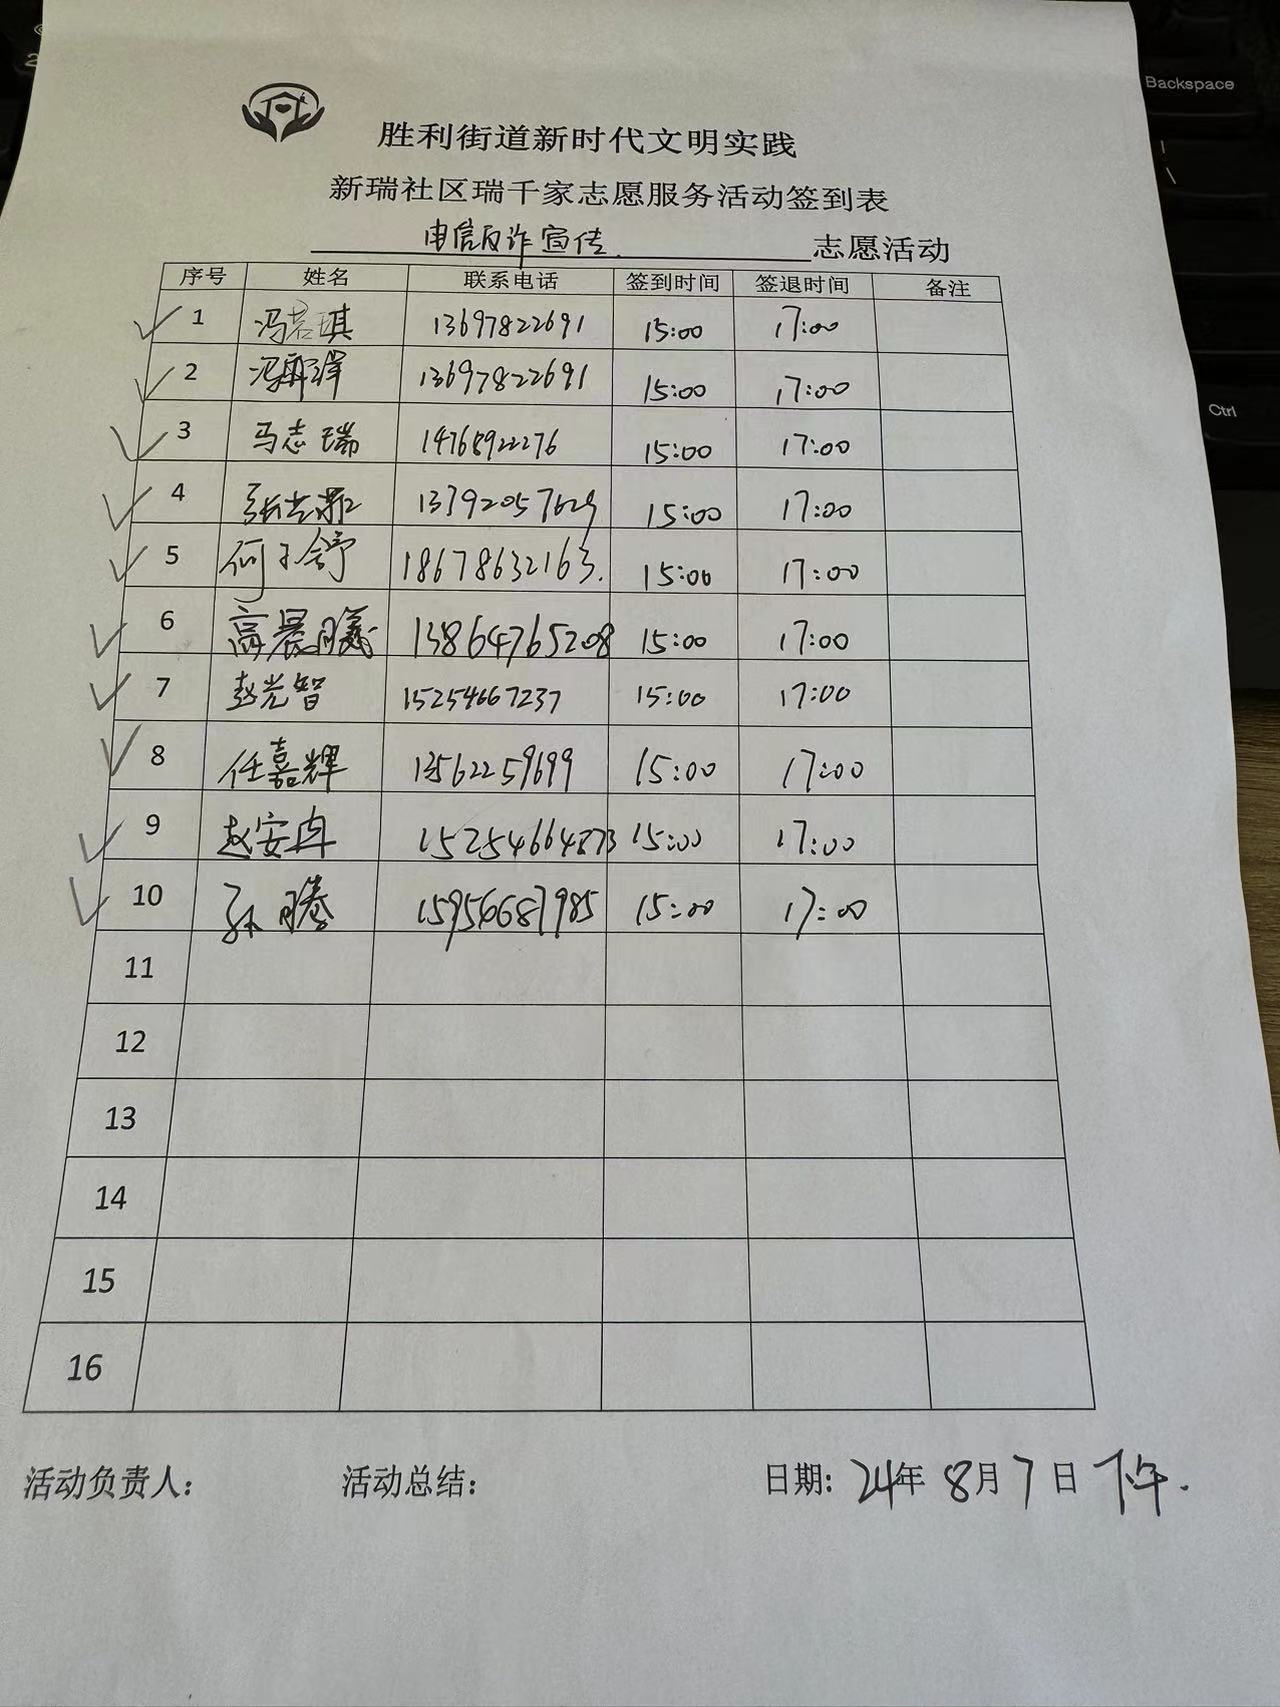 Backspace
Ctrl
胜利街道新时代文明实践
新瑞社区瑞千家志愿服务活动签到表
电信反诈宣传. 志愿活动
序号 姓名 联系电话 签到时间 签退时间 备注
1 冯若琪 13697822691 15:00 17:00
2 冯 13697822691 15:00 17:00
3 马志瑞 14768922276 15:00 17:00
4 张 13792057629 15:00 17:00
5 何子舒 18678632163. 15:00 17:00
6 高晨曦 13864765208 15:00 17:00
7 赵光智 15254667237 15:00 17:00
8 任嘉辉 13562259699 15:00 17:00
9 赵安冉 15254664873 15:00 17:00
10 孙腾 15956687985 15:00 17:00
11
12
13
14
15
16
活动负责人: 活动总结: 日期: 24年 8月7日 下午.